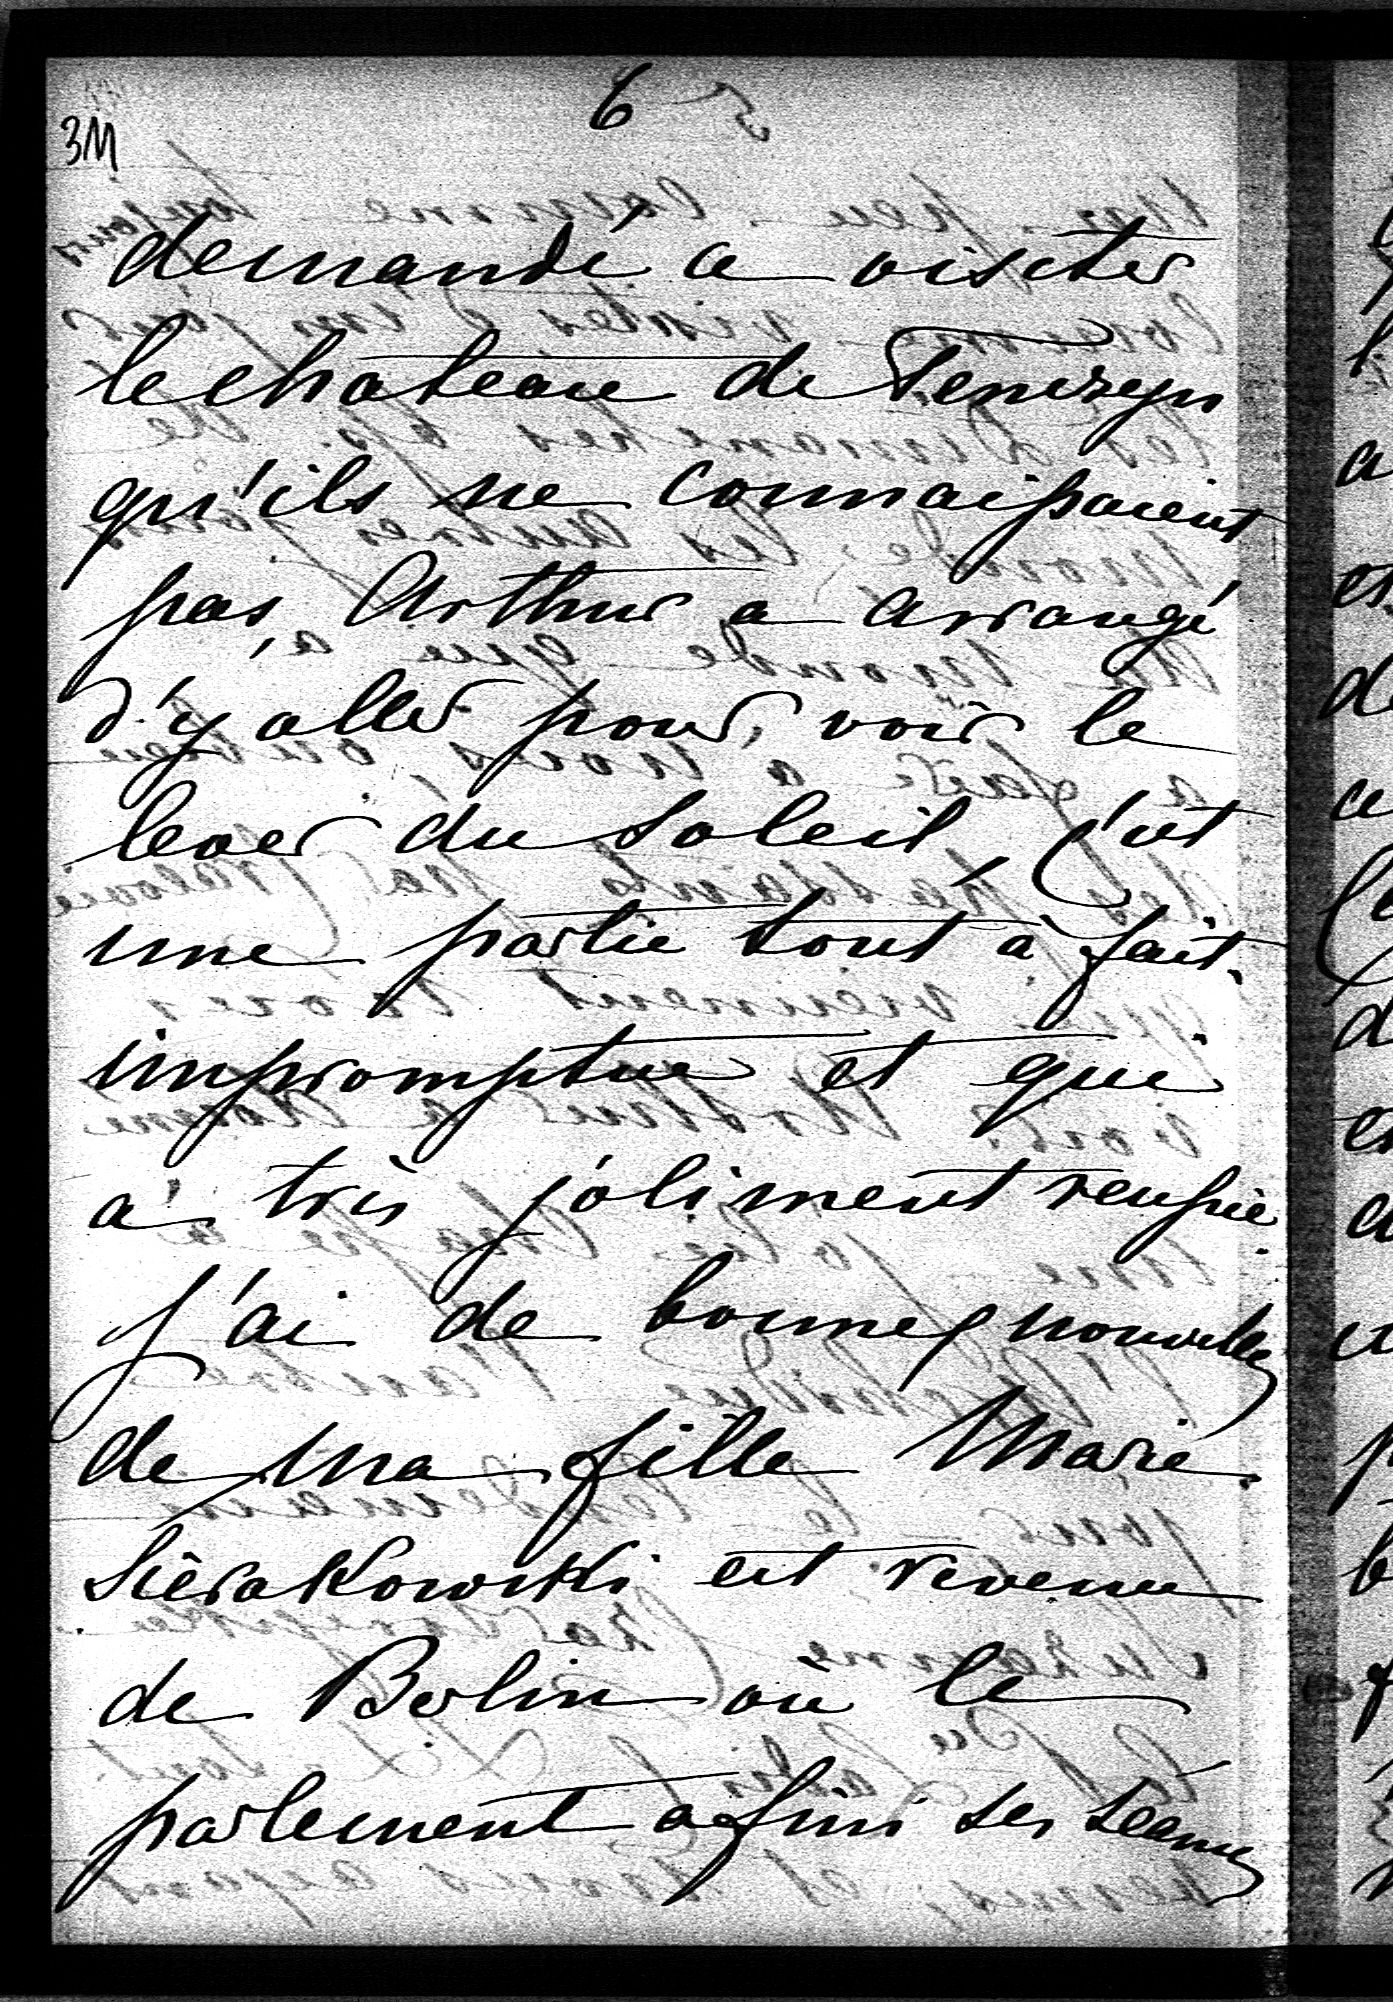 6
3M
demandé à visiter
le chateau de Tenczyn
qu'ils ne connaissaient
pas, Arthur a arrangé
d'y aller pour voir le
lever du soleil, c'est
une partie tout à fait
impromptue et qui
a très joliment reussie.
J'ai de bonnes nouvelles
de ma fille Marie.
Sièrakowski est revenu
de Berlin où le
parlement a fini ses séances